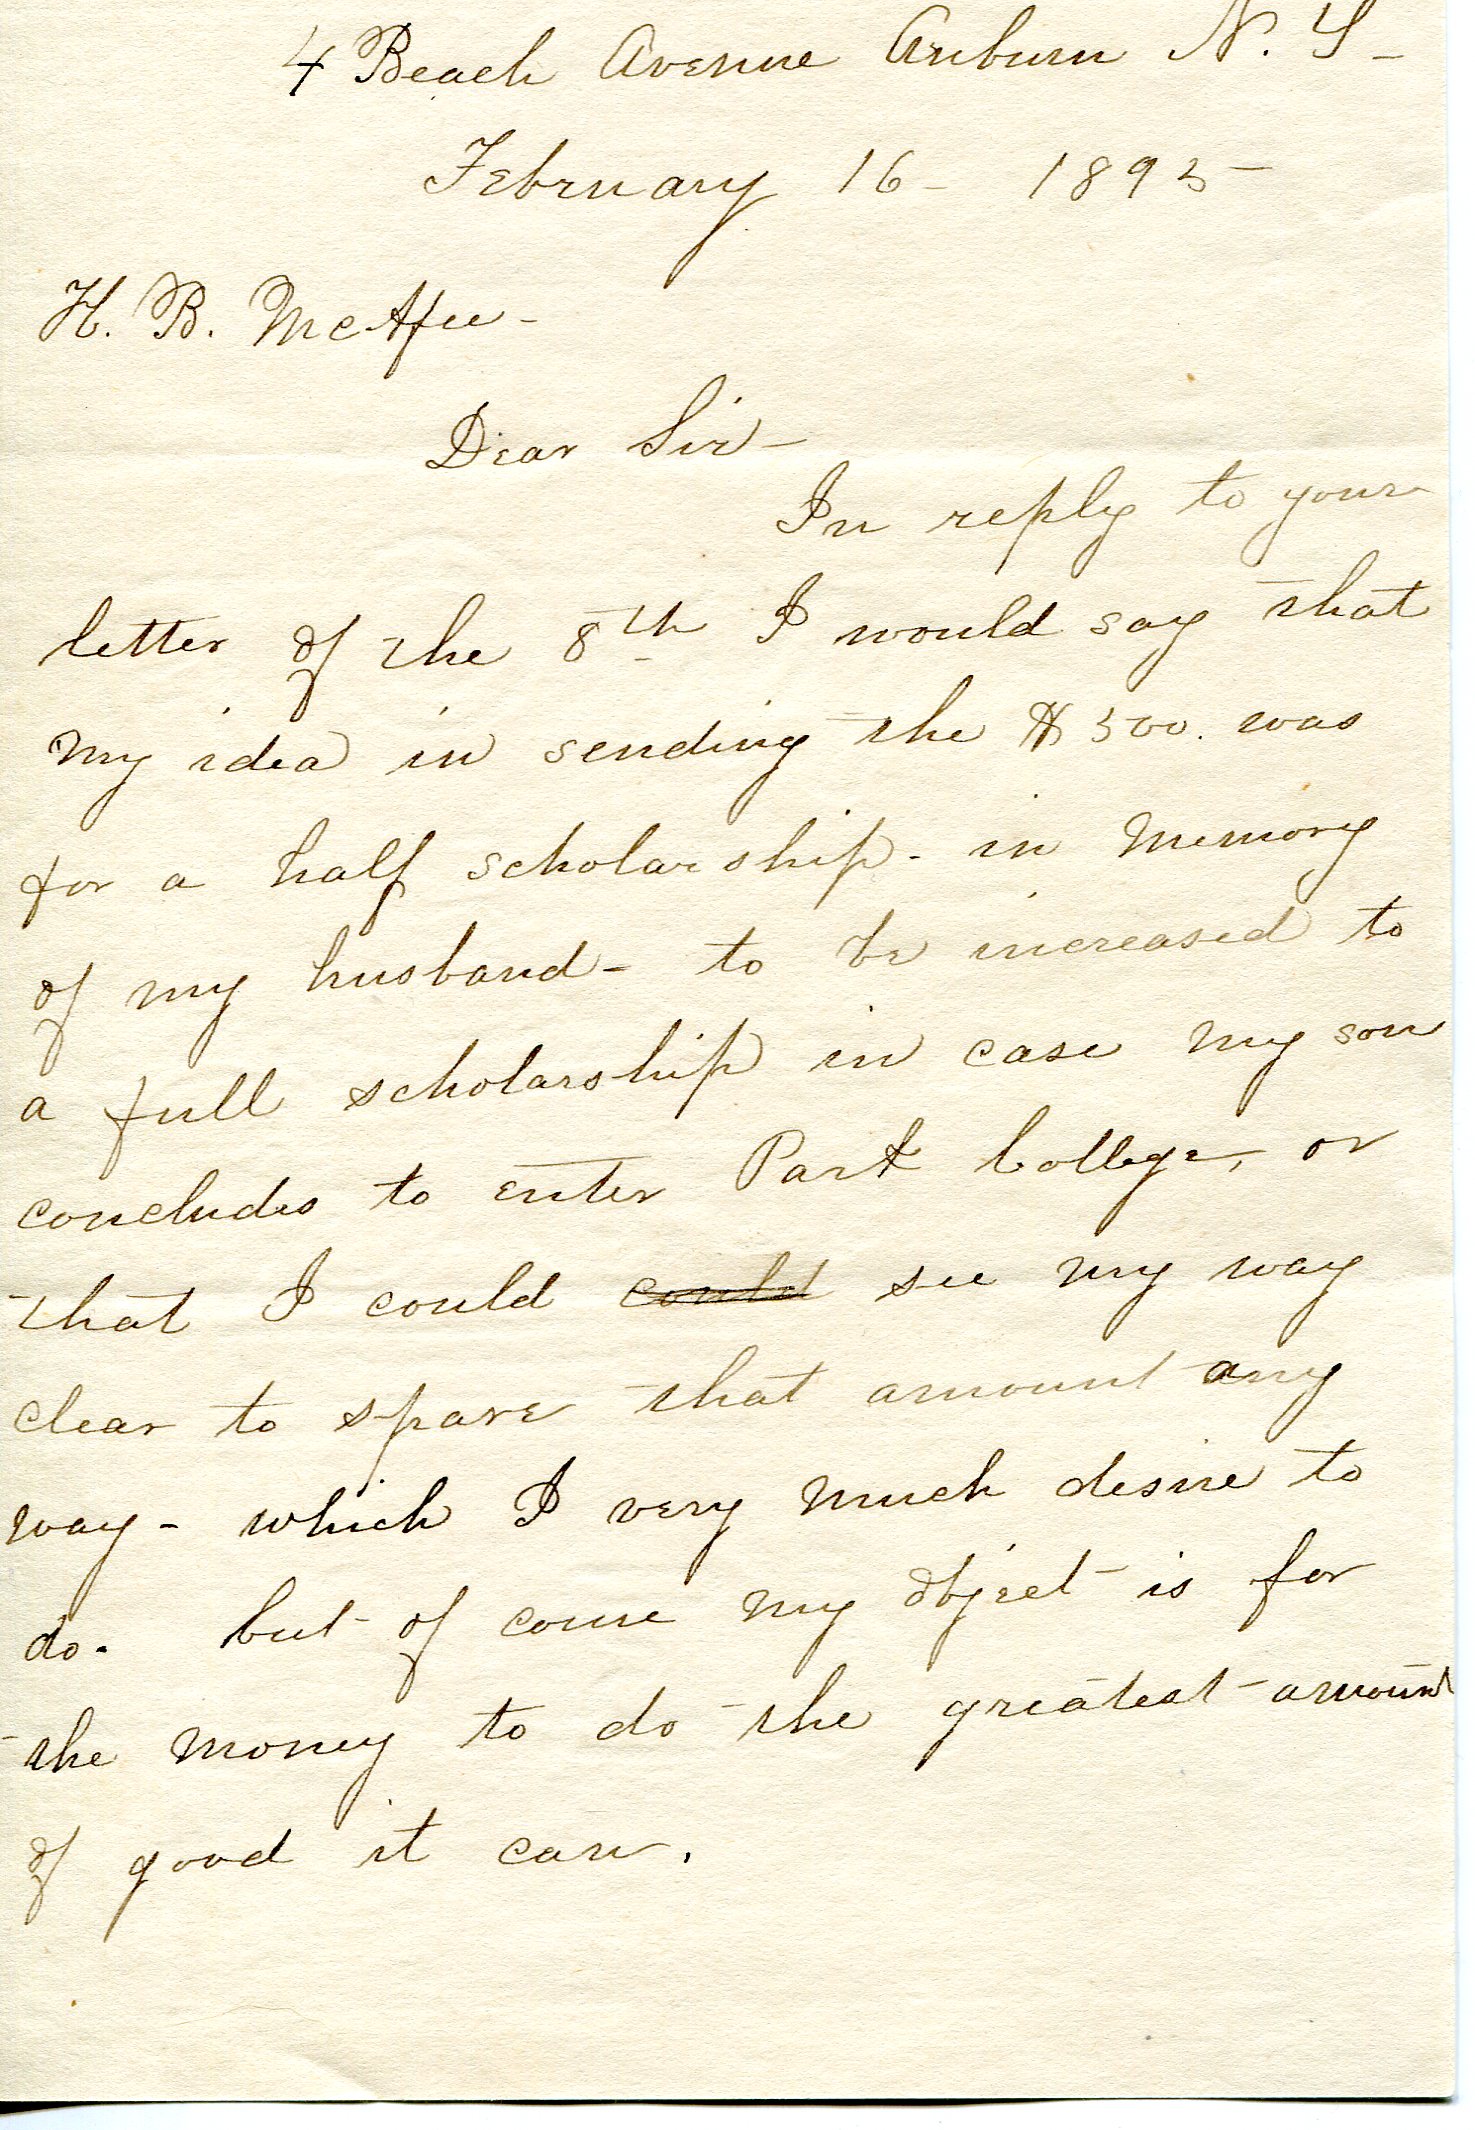 4 Beach Avenue Auburn N. Y-
February 16- 1895
H. B. McAfee-
Dear Sir-
In reply to your
letter of the 8th I would say that
my idea in sending the $500. was
for a half scholarship- in memory
of my husband- to be increased to
a full scholarship in case my son
concludes to enter Park College, or
that I could could see my way
clear to spare that amount any
way- which I very much desire to
do. but of course my object is for
the money to do the greatest amount
of good it can.